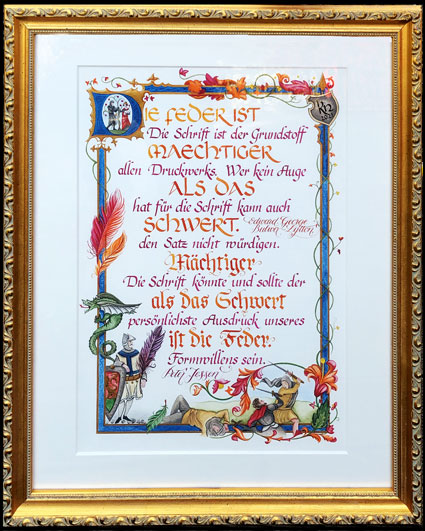 DIE FEDER IST
Die Schrift ist der Grundstoff
MAECHTIGER
allen Druckwerks. Wer kein Auge
ALS DAS
hat für die Schrift kann auch
SCHWERT. Edward George
Bulwer Lytton
den Satz nicht würdigen.
Mächtiger
Die Schrift könnte und sollte der
als das Schwert
persönlichste Ausdruck unseres
ist die Feder
Formwillens sein.
Peter Jessen